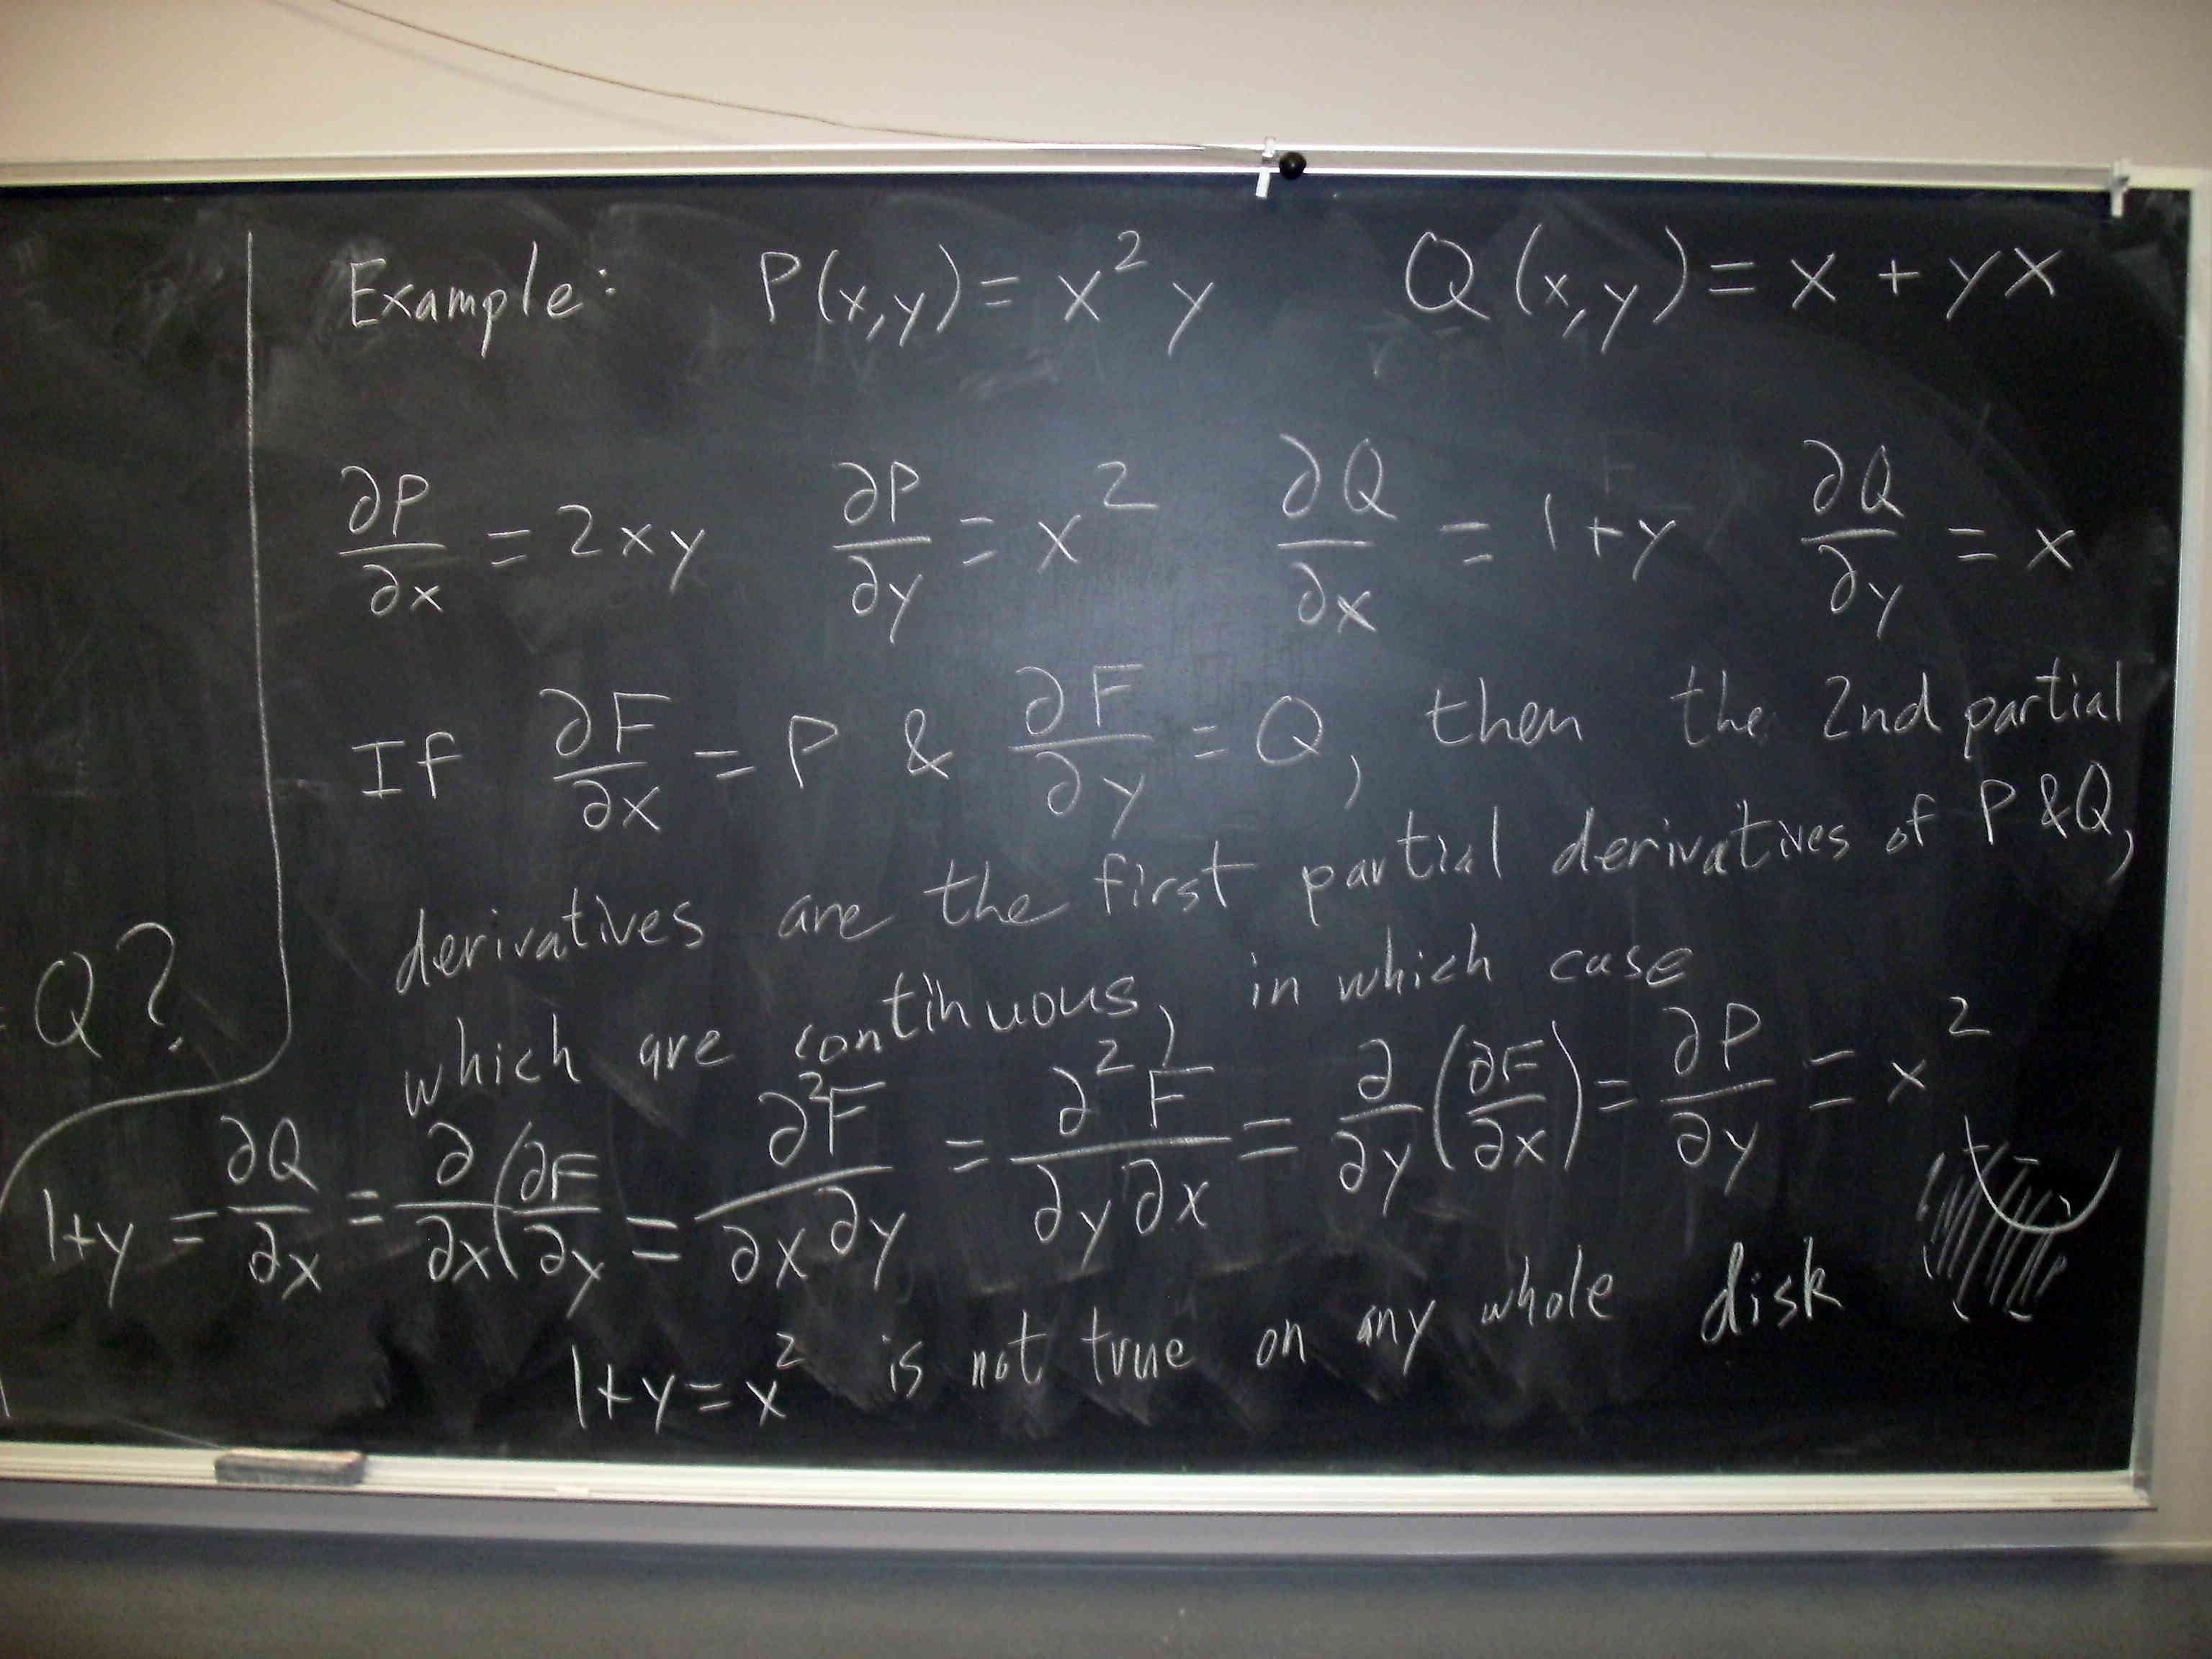 Example: P(x,y) = x² y Q(x,y) = x + yx
∂P/∂x = 2xy ∂P/∂y = x² ∂Q/∂x = 1+y ∂Q/∂y = x
If ∂F/∂x = P & ∂F/∂y = Q, then the 2nd partial
derivatives are the first partial derivatives of P & Q,
= Q?
which are continuous, in which case
1+y = ∂Q/∂x = ∂/∂x(∂F/∂y = ∂²F/∂x∂y = ∂²F/∂y∂x = ∂/∂y(∂F/∂x) = ∂P/∂y = x²
1+y = x² is not true on any whole disk